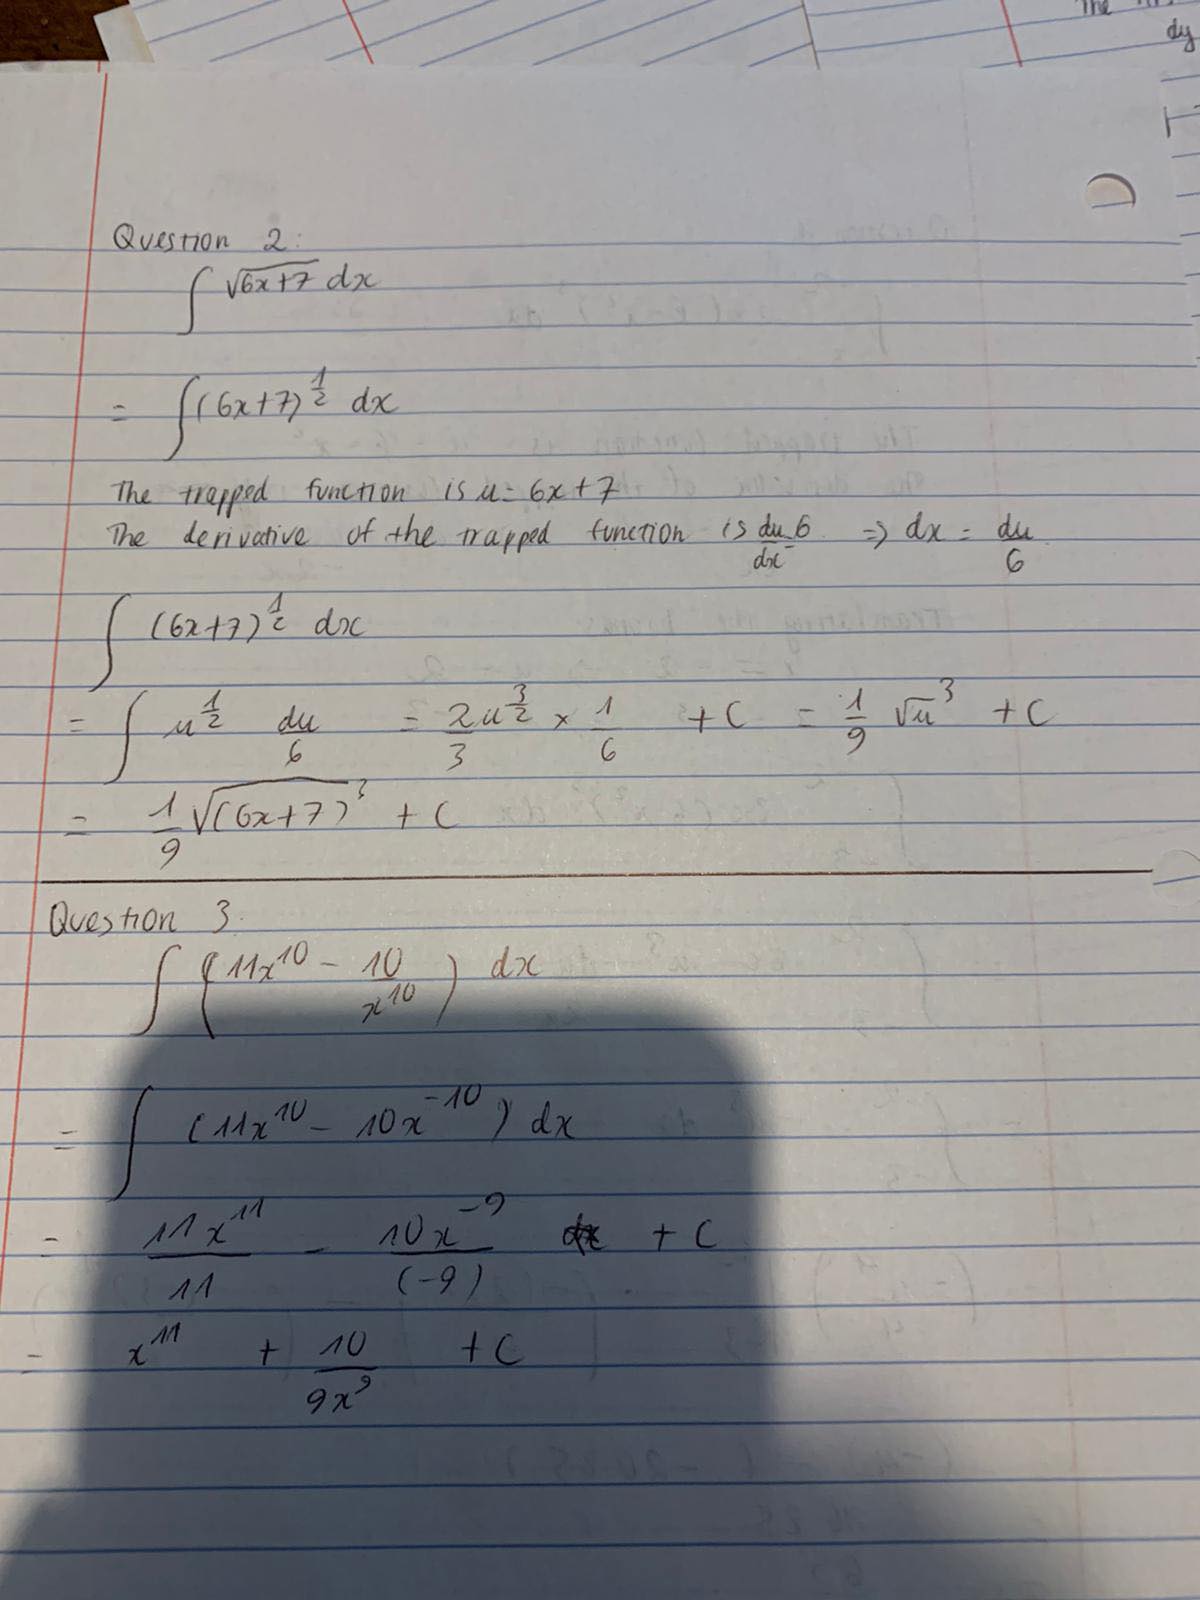 The
dy
Question 2:
∫ √6x+7 dx
= ∫ (6x+7)^1/2 dx
The trapped function is u = 6x+7
The derivative of the trapped function is du/dx = 6 => dx = du/6
∫ (6x+7)^1/2 dx
= ∫ u^1/2 du/6 = 2u^3/2 / 3 × 1/6 + C = 1/9 √u^3 + C
= 1/9 √(6x+7)^3 + C
Question 3:
∫ (11x^10 - 10/x^10) dx
= ∫ (11x^10 - 10x^-10) dx
= 11x^11/11 - 10x^-9/(-9) + C
= x^11 + 10/9x^9 + C